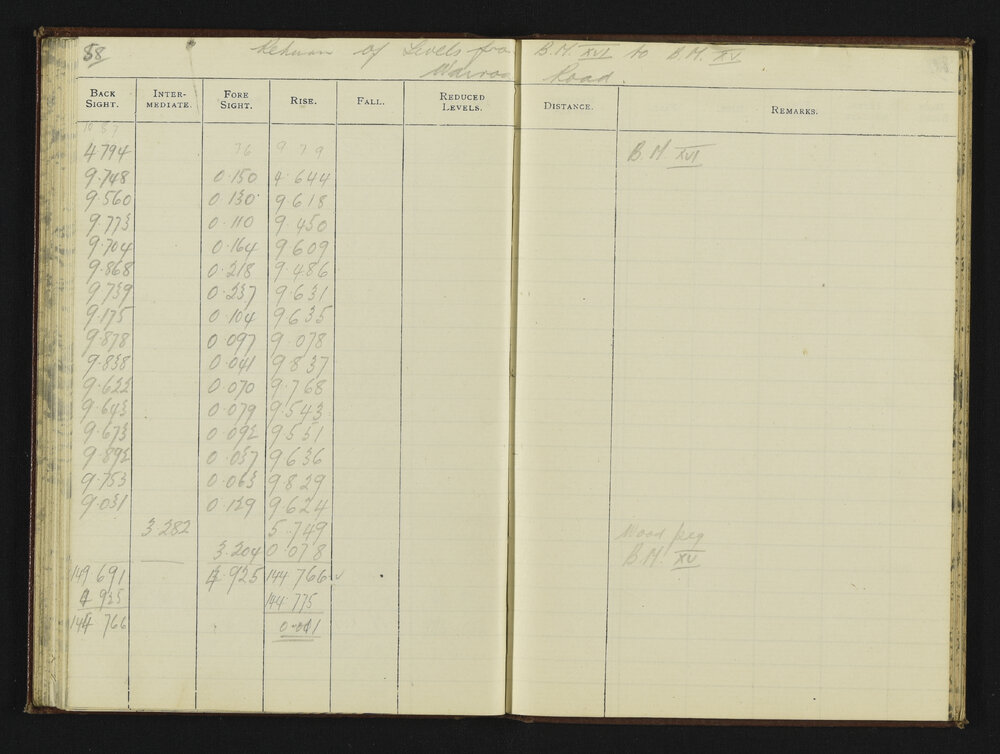 58 Return of Levels from B.M. XVI to B.M. XV
Road.
BACK SIGHT. INTER-MEDIATE. FORE SIGHT. RISE. FALL. REDUCED LEVELS. DISTANCE. REMARKS.
4.794 B.M. XVI
9.748 0.150 4.644
9.560 0.130 9.618
9.773 0.110 9.450
9.704 0.164 9.609
9.868 0.218 9.486
9.739 0.237 9.631
9.175 0.104 9.635
9.878 0.097 9.078
9.838 0.041 9.837
9.622 0.070 9.768
9.643 0.079 9.543
9.673 0.092 9.551
9.892 0.037 9.636
9.753 0.063 9.829
9.031 0.129 9.624
3.282 5.749 Wood peg
3.204 0.078 B.M. XV
149 691 4.925 144 766
4 925 144.775
144 766